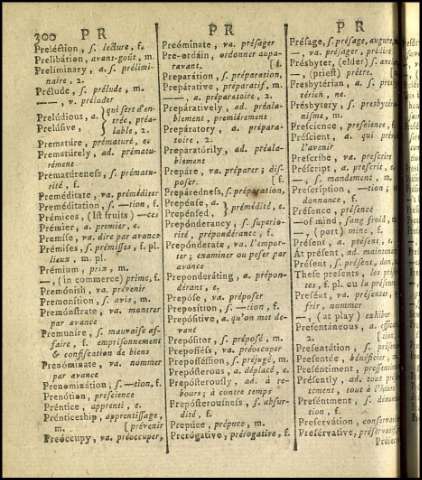 300 P R
P R
P R
Preléction, s. lecture, f.
Prelibátion, avant-goût, m.
Preliminary, a. s. prélimi-
naire, 2.
Prélude, s. prélude, m.
——, v. préluder
Prelúdious, a. } qui sert d'en-
Prelúsive, } trée, préa-
lable, 2.
Prematúre, prématuré, e
Prematúrely, ad. prématu-
rément
Prematúreness, s. prématu-
rité, f.
Preméditate, va. préméditer
Premeditátion, s. —tion, f.
Prémices, (ist fruits) —ces
Prémier, a. premier, e.
Premíse, va. dire par avance
Prémises, s. prémisses, f. pl.
lieux, m. pl.
Prémium, prix, m.
—, (in commerce) prime, f.
Premónish, va. prévenir
Premonítion, s. avis, m.
Premónstrate, va. montrer
par avance
Premuníre, s. mauvaise af-
faire, f. emprisonnement
& confiscation de biens
Prenóminate, va. nommer
par avance
Prenominátion, s. —tion, f.
Prenótion, prescience
Préntice, apprenti, e.
Prénticeship, apprentissage,
m. [prévenir
Preóccupy, va. préoccuper,
Preóminate, va. présager
Pre-ordáin, ordonner aupa-
ravant. [f.
Preparátion, s. préparation,
Préparative, preparatif, m.
—, a. préparatoire, 2.
Prepáratively, ad. préala-
blement, premièrement
Prepáratory, a. prépara-
toire, 2.
Prepáratorily, ad. préala-
blement
Prepáre, va. préparer; dis-
poser. [f.
Prepáredness, s. préparation,
Prepénse, a. } prémédité, e.
Prepénsed, }
Prepónderancy, s. superio-
rité, prépondérance, f.
Prepónderate, va. l'empor-
ter; examiner ou peser par
avance
Preponderáting, a. prépon-
dérant, e.
Prepóse, va. préposer
Preposítion, s. —tion, f.
Prepósitive, a. qu'on met de-
vant
Prepósitor, s. préposé, m.
Preposséss, va. préoccuper
Preposséssion, s. préjugé, m.
Prepósterous, a. déplacé, e.
Prepósterously, ad. à re-
bours; à contre temps
Prepósterousness, s. absur-
dité, f.
Prepúce, prépuce, m.
Prerógative, prérogative, f.
Présage, s. présage, augure,
—, va. présager, prédire
Présbyter, (elder) s. ancien
— (priest) prêtre.
Presbytérian, a. s.
ne.
Présbytery, s.
nisme, m.
Prescience, prescience, f.
Préscient, a. qui
l'avenir
Prescríbe, va. prescrire
Préscript, a. prescrit, e.
—, s. mandement, m.
Prescríption, —tion;
donnance, f.
Présence, présence
—of mind, sang froid, m.
—, (port) mine, f.
Présent, a. présent, e.
At présent, ad. maintenant
Présent, s. présent, don, m.
These presents, les
tes, f. pl. ou la présente
Presént, va. présenter,
frir, nommer
—, (at play) exhiber
Presentáneous, a.
2.
Presentátion, s.
Presentée, bénéficier,
Preséntiment, pressentiment
Présently, ad. tout présentement,
tout à l'heure
Preséntment, s. dénonciation,
f.
Preservátion, conservation
Presérvative, préservatif